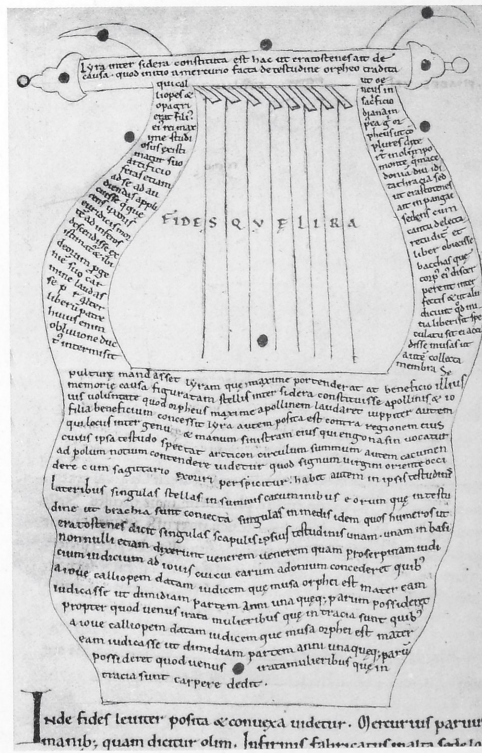 Lyra inter sidera constituta est hac ut eratostenes ait de
causa. quod initio a mercurio facta de testudine orpheo tradita
qui cal
liopes &
opagri
erat fili'
ei rei max
ime studi
osus existi
matur suo
artificio
feras etiam
ad se ad au
diendas appli
cuisse q que
rens uxoris
euridicis mor
te ad inferos
descendisse ex
istimat &
deorum pge
niē suo car
mine laudas
se p
liberū patrē
huius enim
oblivione duc
t' intermisit
ut oe
neus in
sacficio
dianam
pheus ut co
plures
it in olimpo
monte q mace
doniā dividi
t a thracia sed
ut eratostenes
ait in pangai
sedens cum
cantu delecta
retur dicit' ei
liber obiecisse
bacchas quę
corp' ei' discer
perent inter
fecti & ut alii
dicunt qd ini
tia liberi sit spe
culatus sit ei acci
disse musas ut
autē collecta
membra Se
FIDES QVE LIRA
pulture mandasset lyram que maxime portenderat at beneficio illius
memorie causa figuratam stellis inter sidera constituisse apollinis & io
vis voluntate quod orpheus maxime apollinem laudaret iuppiter autem
filia beneficium concessit lyra autem posita est contra regionem eius
qui locus inter genu & manum sinistram eius qui engonasin vocatur
cuius ipsa testudo spectat arcticon circulum summum autem cacumen
ad polum notium contendere videtur quod signum virginis oriente occi
dere cum sagittario exoriri perspicitur. habet autem in ipsis testudinis
lateribus singulas stellas in summis cacuminibus eorum que in testu
dine ut brachia sunt coniecta singulas in mediis idem quos humeros ut
eratostenes dicit singulas scapulis ipsius testudinis unam. unam in basi
nonnulli etiam dixerunt venerem venerem quam proserpinam iudi
cium iudicium ad iovis cui cui earum adonium concederet quib'
a iove calliopem datam iudicem que musa orphei est mater eam
iudicasse ut dimidiam partem anni una queq; earum possideret
propter quod venus irata mulieribus que in tracia sunt quib'
a iove calliopem datam iudicem que musa orphei est mater
eam iudicasse ut dimidiam partem anni unaqueq; earū
possideret quod venus irata mulieribus quę in
tracia sunt carpere dedit.
Inde fides leviter posita & convexa videtur. Mercurius parvus
manib; quam dicitur olim. Infirmis fabricatus